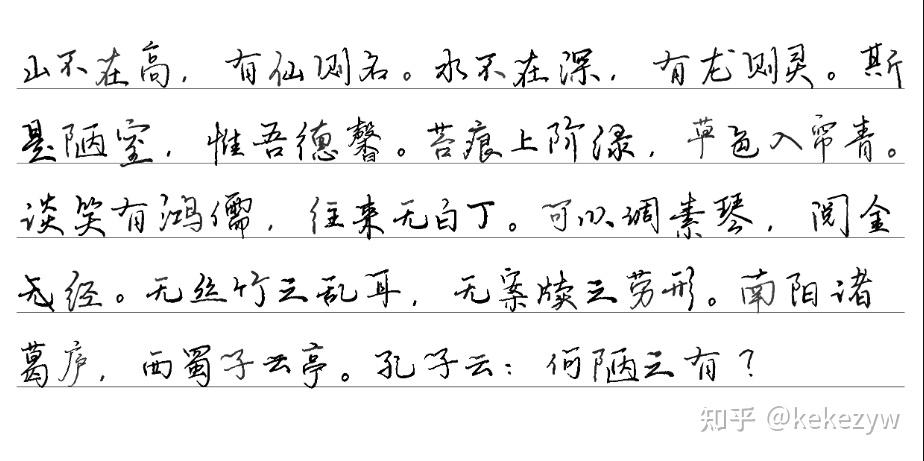 山不在高，有仙则名。水不在深，有龙则灵。斯
是陋室，惟吾德馨。苔痕上阶绿，草色入帘青。
谈笑有鸿儒，往来无白丁。可以调素琴，阅金
戋经。无丝竹之乱耳，无案牍之劳形。南阳诸
葛庐，西蜀子云亭。孔子云：何陋之有？
知乎 @kekezyw